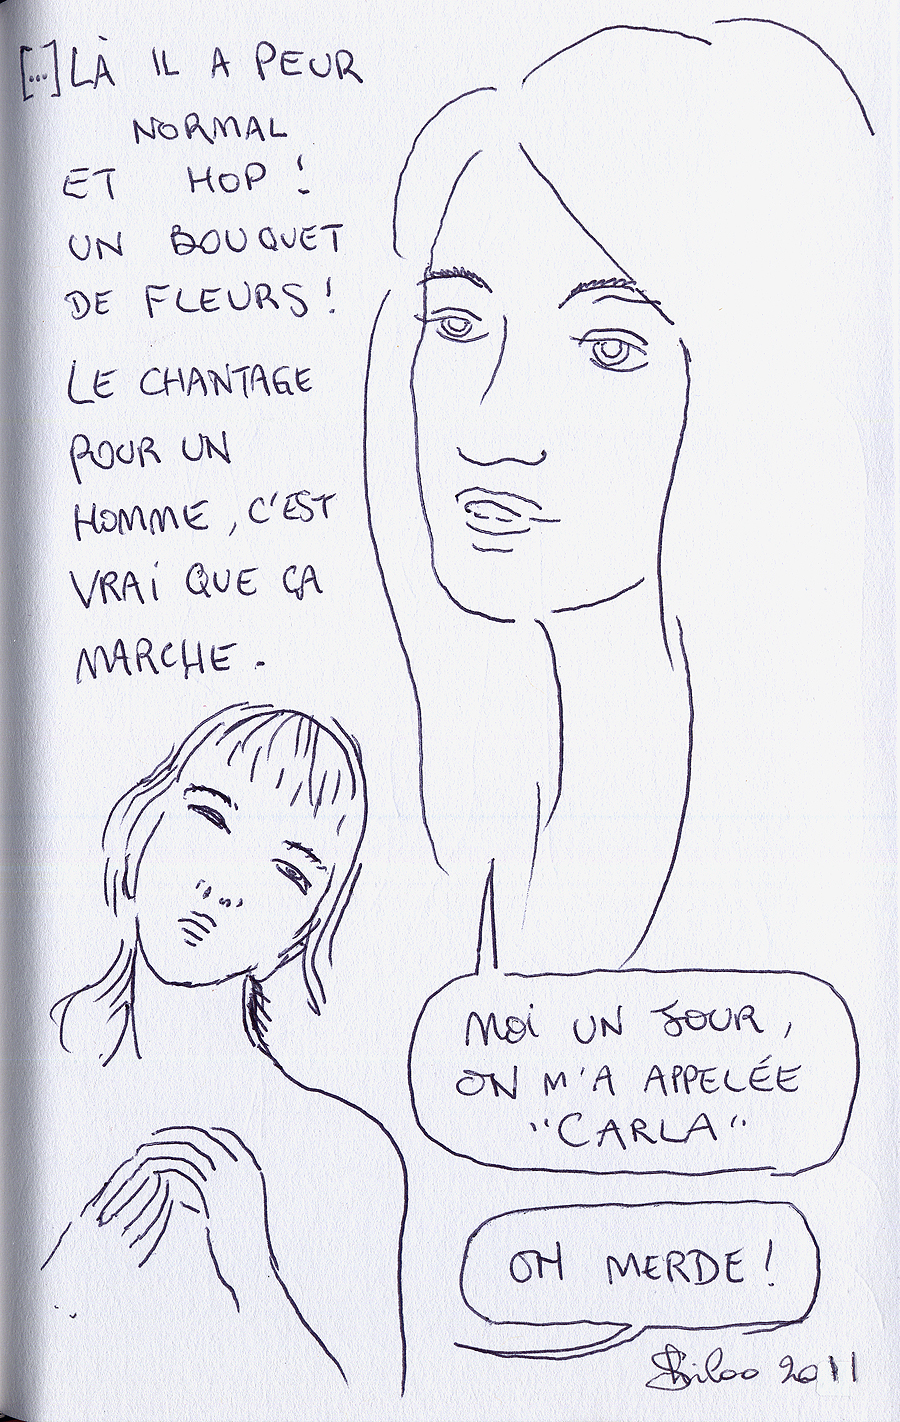 [...] LÀ IL A PEUR
NORMAL
ET HOP !
UN BOUQUET
DE FLEURS !
LE CHANTAGE
POUR UN
HOMME, C'EST
VRAI QUE ÇA
MARCHE.
MOI UN JOUR,
ON M'A APPELÉE
"CARLA"
OH MERDE !
2011